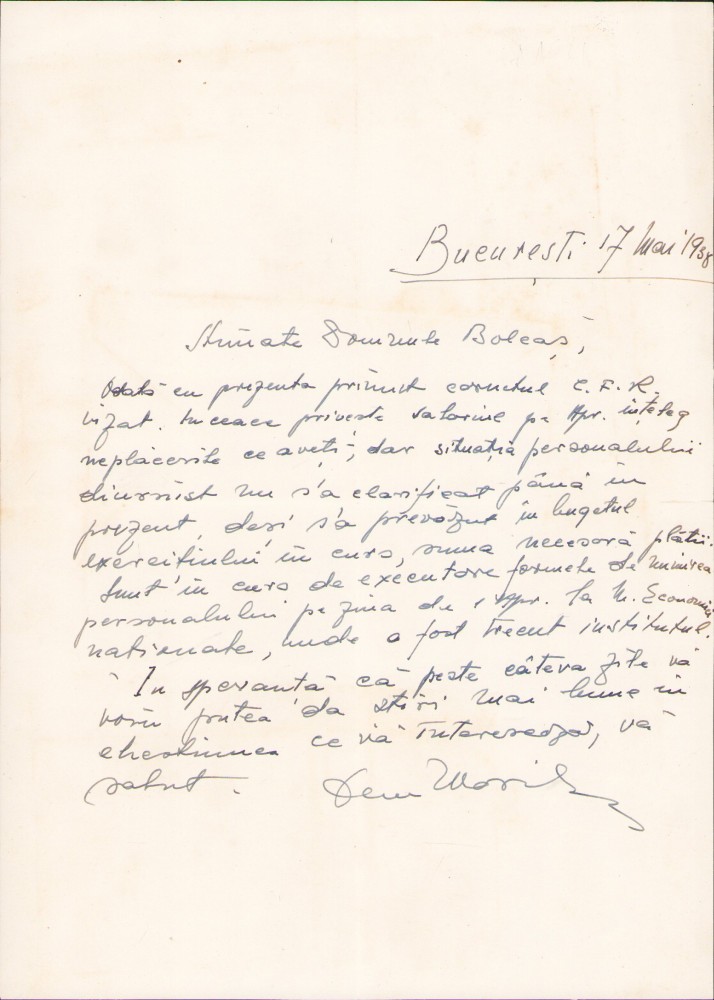 București 17 Mai 1938
Stimate Domnule Bolcaș,
Odată cu prezenta primiți carnetul C.F.R.
vizat. Inceace privește valorile pe Apr. înțeleg
neplăcerile ce aveți, dar situația personalului
diurnist nu s'a clarificat până în
prezent, deși s'a prevăzut în bugetul
exercițiului în curs, suma necesară plății.
Sunt în curs de executare formele de numirea
personalului pe ziua de 1 Apr. la M. Economiei
naționale, unde a fost trecut institutul.
In speranță că peste câteva zile vă
voiu putea da știri mai bune în
chestiunea ce vă interesează, vă
salut.